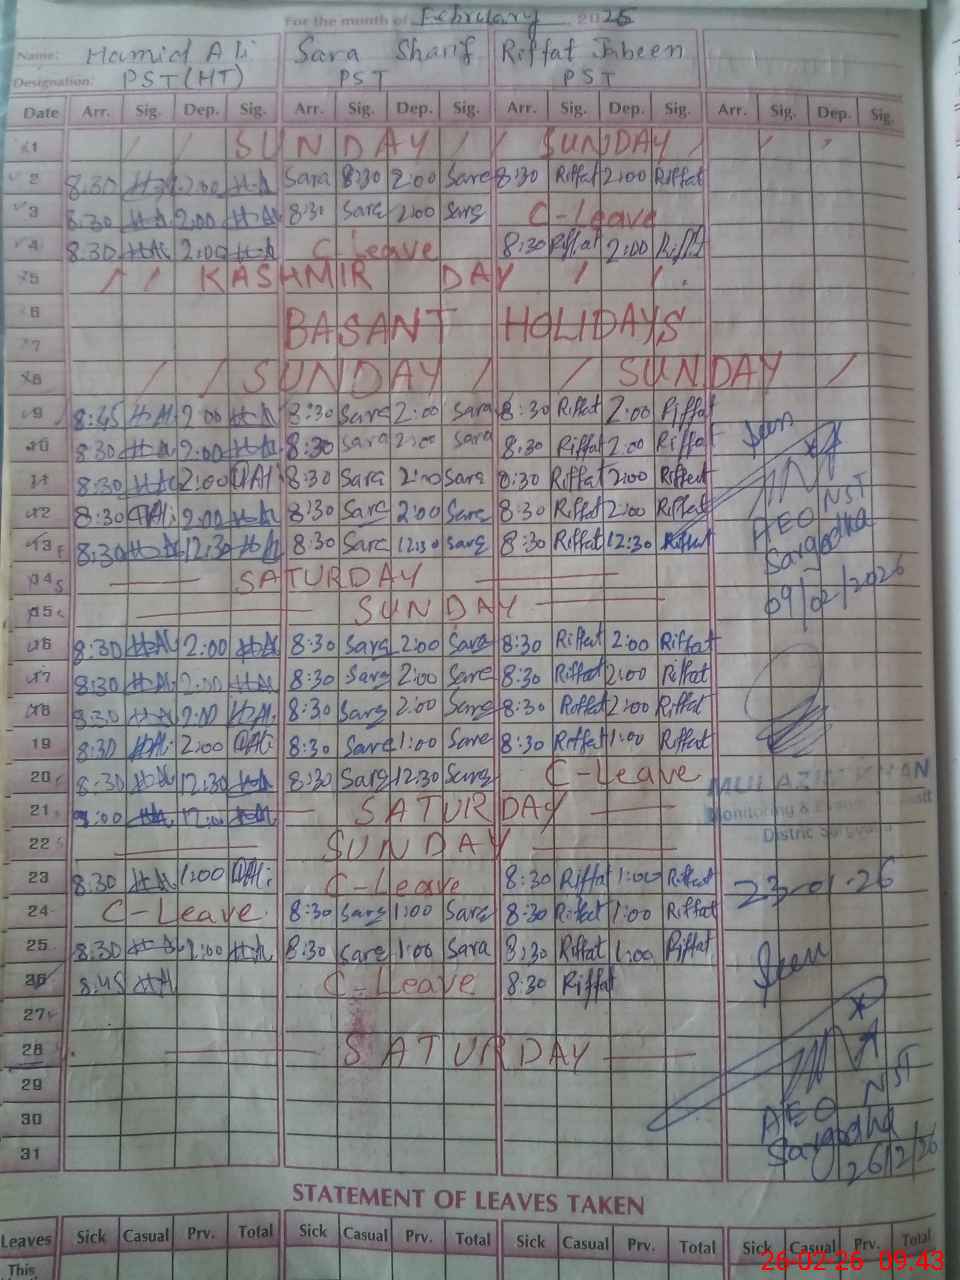 For the month of February 2026
Name: Hamid Ali Sara Sharif Riffat Jabeen
Designation: PST(HT) PST PST
Date Arr. Sig. Dep. Sig. Arr. Sig. Dep. Sig. Arr. Sig. Dep. Sig. Arr. Sig. Dep. Sig.
1 SUNDAY SUNDAY
2 8:30 H-A 2:00 H-A Sara 8:30 2:00 Sara 8:30 Riffat 2:00 Riffat
3 8:30 H-A 2:00 H-A 8:30 Sara 2:00 Sara C-Leave
4 8:30 HAl 2:00 H-A C-Leave 8:30 Riffat 2:00 Riffat
5 KASHMIR DAY
6 BASANT HOLIDAYS
7
8 SUNDAY SUNDAY
9 8:45 H-Al 2:00 H-A 8:30 Sara 2:00 Sara 8:30 Riffat 2:00 Riffat
10 8:30 H-A 2:00 H-A 8:30 Sara 2:00 Sara 8:30 Riffat 2:00 Riffat
Seen
11 8:30 HAl 2:00 HAli 8:30 Sara 2:00 Sara 8:30 Riffat 2:00 Riffat
12 8:30 HAli 2:00 H-A 8:30 Sara 2:00 Sara 8:30 Riffat 2:00 Riffat
AEO NST
13 8:30 H-A 12:30 H-A 8:30 Sara 12:30 Sara 8:30 Riffat 12:30 Riffat
Sargodha
14 SATURDAY
09/02/2026
15 SUNDAY
16 8:30 HAl 2:00 HAl 8:30 Sara 2:00 Sara 8:30 Riffat 2:00 Riffat
17 8:30 H-A 2:00 H-A 8:30 Sara 2:00 Sara 8:30 Riffat 2:00 Riffat
18 8:30 H-A 2:00 HAl 8:30 Sara 2:00 Sara 8:30 Riffat 2:00 Riffat
19 8:30 HAli 2:00 HAli 8:30 Sara 1:00 Sara 8:30 Riffat 1:00 Riffat
20 8:30 H-A 12:30 H-A 8:30 Sara 12:30 Sara C-Leave
21 9:00 H-A SATURDAY
Monitoring &
22 SUNDAY
Distric
23 8:30 H-A 1:00 HAli C-Leave 8:30 Riffat 1:00 Riffat
23-01-26
24 C-Leave 8:30 Sara 1:00 Sara 8:30 Riffat 1:00 Riffat
25 8:30 H-A 1:00 H-A 8:30 Sara 1:00 Sara 8:30 Riffat 1:00 Riffat
Seen
26 8:45 H-A C-Leave 8:30 Riffat
27
28 SATURDAY
29
30
AEO NST
31
Sargodha
26/2/26
STATEMENT OF LEAVES TAKEN
Leaves Sick Casual Prv. Total Sick Casual Prv. Total Sick Casual Prv. Total Sick Casual Prv. Total
This
26-02-26 09.43